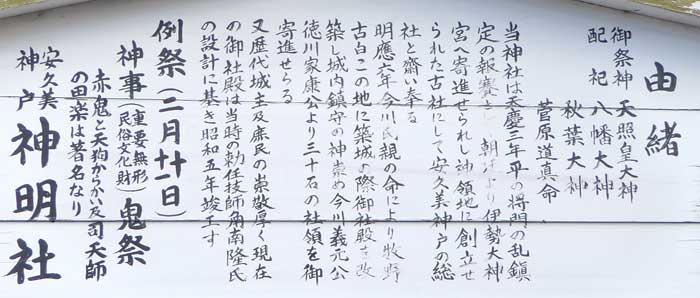 由緒
御祭神 天照皇大神
配祀 八幡大神
秋葉大神
菅原道眞命
当神社は天慶三年平の将門の乱鎮
定の報賽として朝廷より伊勢大神
宮へ寄進せられし神領地に創立せ
られた古社にして安久美神戸の総
社と齋い奉る
明應六年今川氏親の命により牧野
古白この地に築城の際御社殿を改
築し城内鎮守の神崇め今川義元公
徳川家康公より三十石の社領を御
寄進せらる
又歴代城主及庶民の崇敬厚く現在
の御社殿は当時の勅任技師角南隆氏
の設計に基き昭和五年竣工す
例祭(二月十一日)
神事(重要無形民俗文化財)鬼祭
赤鬼と天狗からかい及司天師
の田楽は著名なり
安久美
神戸 神明社